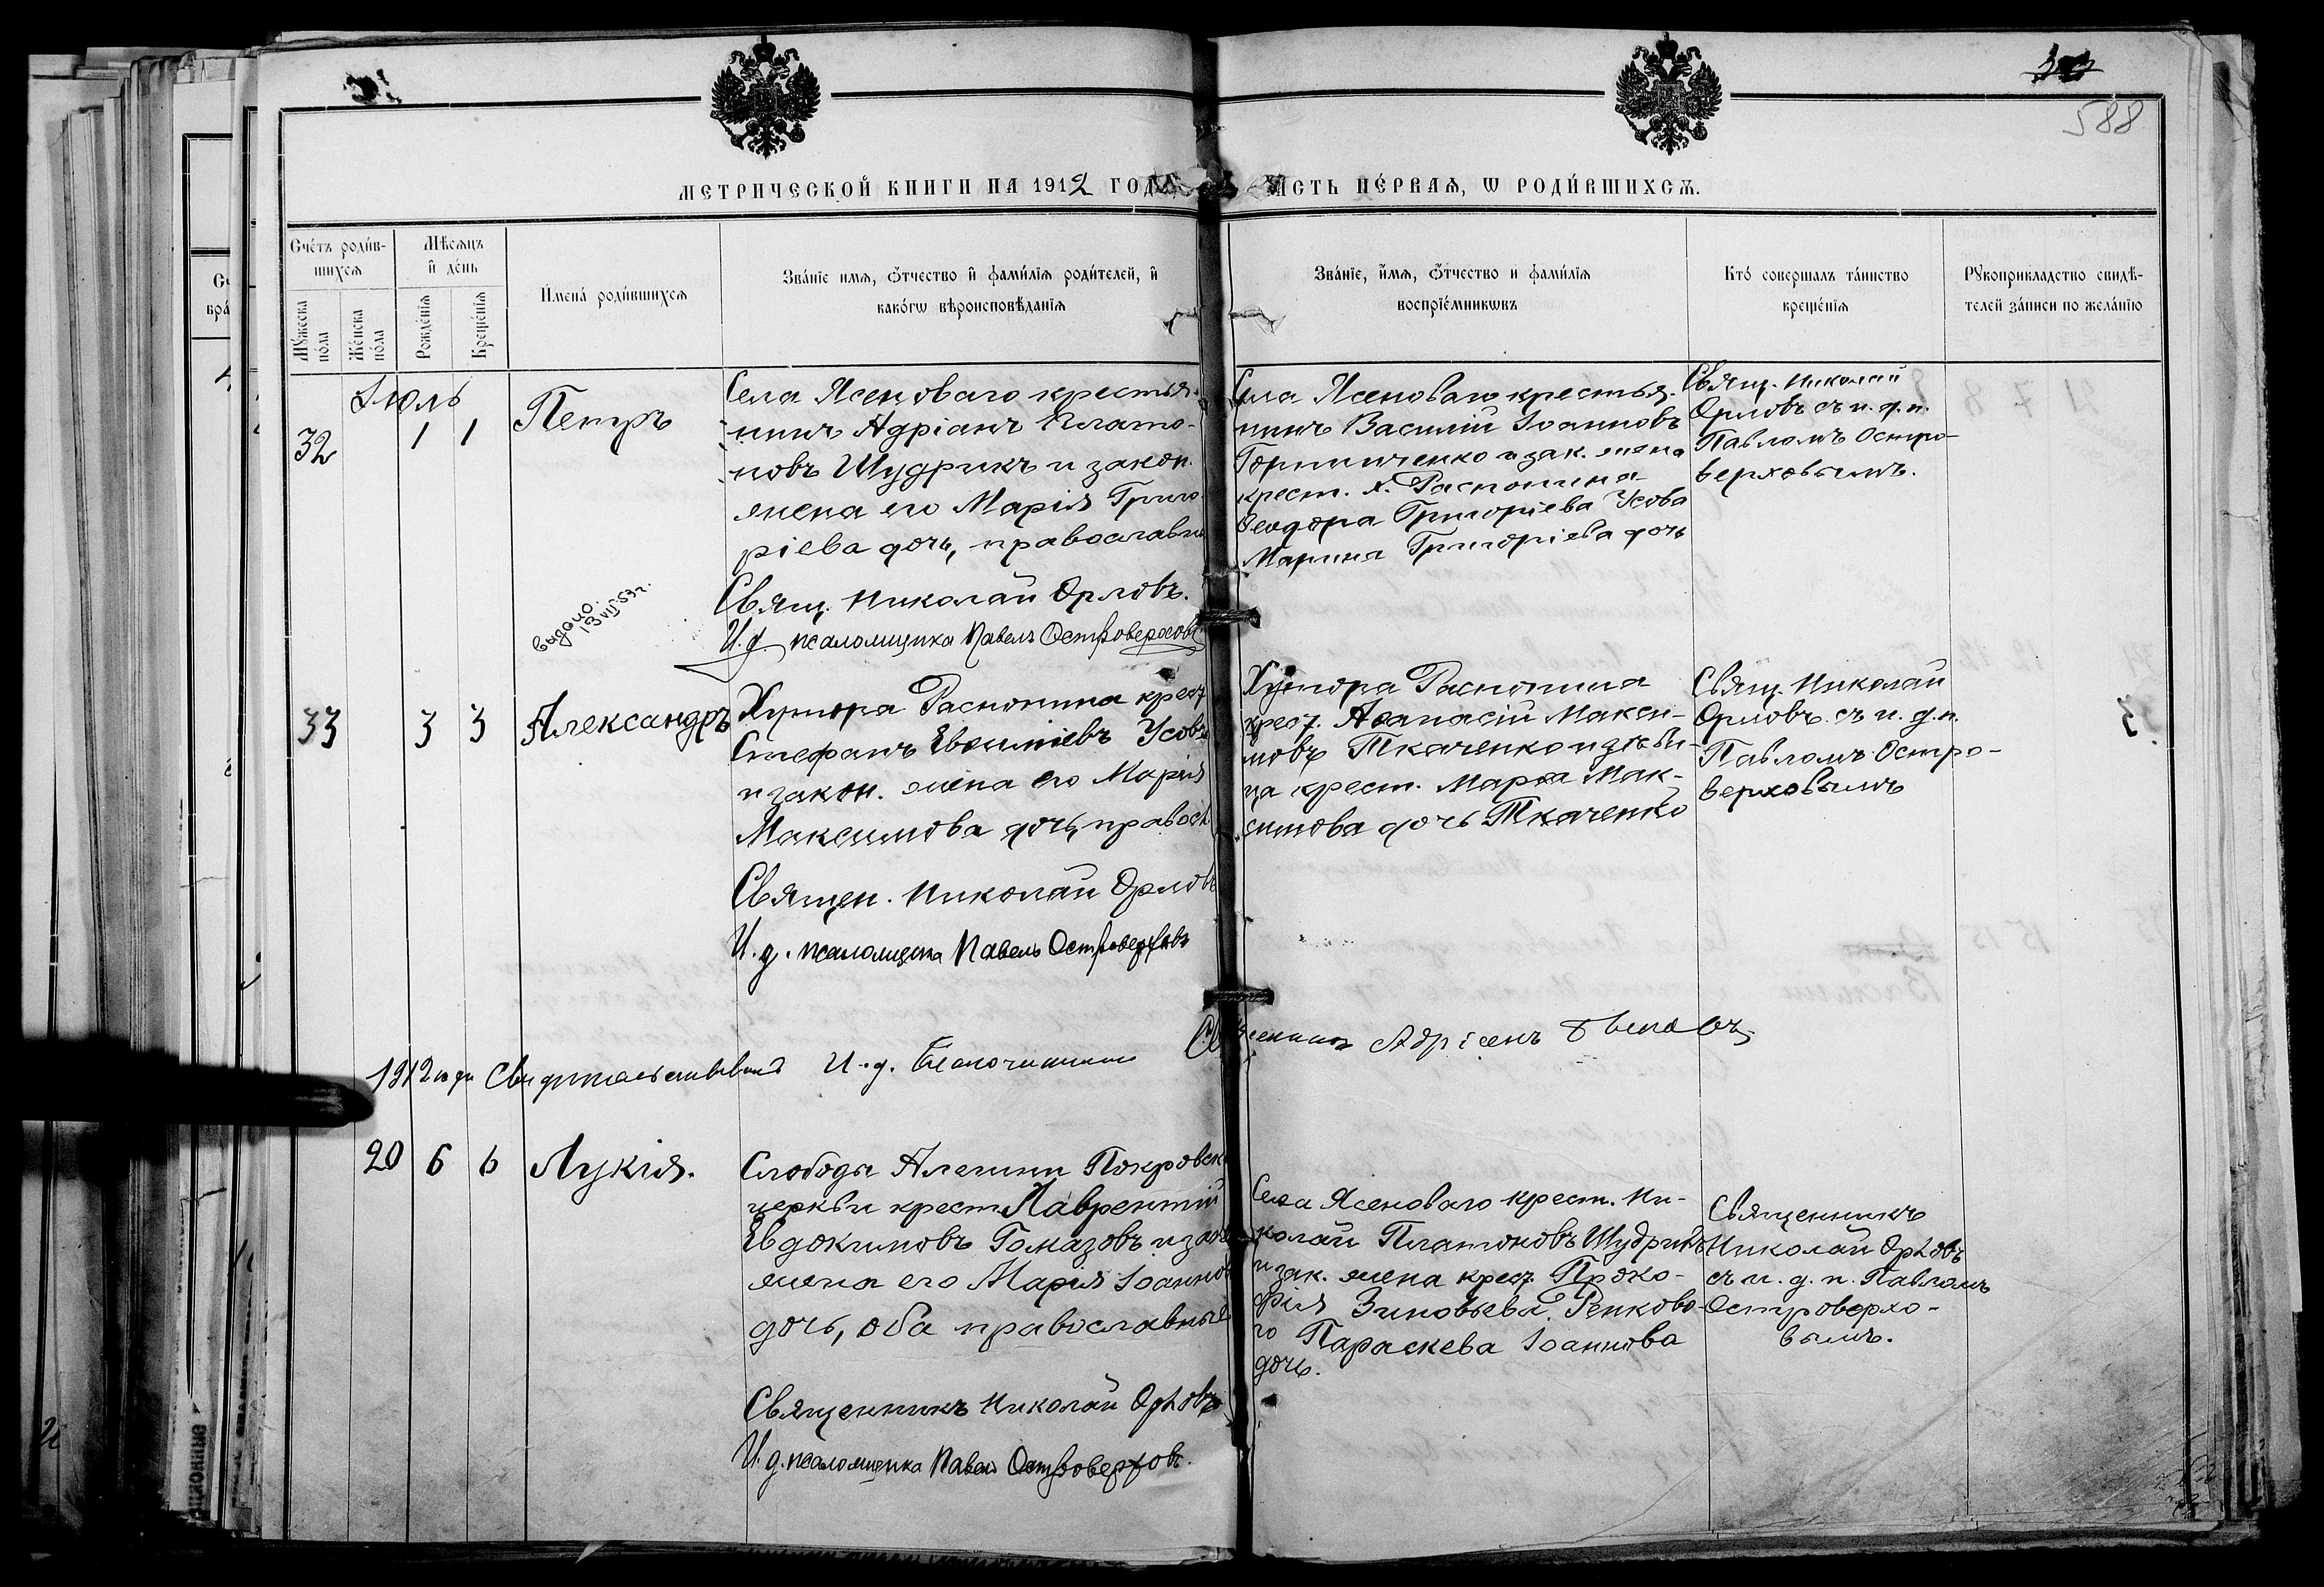 588
МЕТРИЧЕСКОЙ КНИГИ НА 1912 ГОДЪ, ЧАСТЬ ПЕ́РВАѦ, Ѡ РОДИ́ВШИХСѦ.
Счётъ роди́в-
шихсѧ
Мѣсѧцъ
и҆ де́нь
Мꙋ́жеска по́ла
Же́нска по́ла
Рожде́нїѧ
Креще́нїѧ
И҆мена́ роди́вшихсѧ
Зва́нїе имѧ, ѻ҆́тчество и҆ фами́лїѧ роди́телей, и҆
како́гѡ вѣроисповѣ́данїѧ
Зва́нїе, и҆́мѧ, ѻ҆́тчество и фами́лїѧ
воспрїе́мникѡвъ
Кто́ соверша́лъ та́инство
креще́нїѧ
Рꙋкоприкладство свидѣ-
телей за́писи по жела́нїю
Іюль
32
1 1
Петръ
Села Ясеноваго крестья-
нинъ Адріанъ Плато-
новъ Шудрикъ и закон.
жена его Марія Григо-
ріева дочь, православн
Свящ. Николай Орловъ.
И. д. псаломщика Павелъ Островерховъ
Села Ясеноваго крестья-
нинъ Василій Іоанновъ
и зак. жена
крест. х. Распопина
Ѳеодора Григоріева Усова
Марина Григоріева дочь
Свящ. Николай
Орловъ съ и. д. п.
Павломъ Остро-
верховымъ.
выдано.
13 VII 53 г.
33
3 3
Александръ
Хутора Распопина крест
Стефанъ Евѳиміевъ Усовъ
и закон. жена его Марія
Максимова дочь, правосл
Священ. Николай Орловъ
И. д. псаломщика Павелъ Островерховъ
Хутора Распопина
крест. Аѳанасій Макси-
мовъ Ткаченко и дѣви-
ца крест. Марѳа Мак-
симова дочь Ткаченко
Свящ. Николай
Орловъ съ и. д. п.
Павломъ Остро-
верховымъ
1912 года И. д. Благочиннаго Священникъ Адріанъ
20 6 6
Лукія.
Слободы Алешни Покровск
церкви крест. Лаврентій
Евдокимовъ Гомазовъ и закон
жена его Марія Іоаннов
дочь, оба православные
Священникъ Николай Орловъ
И. д. псаломщика Павелъ Островерховъ.
Села Ясеноваго крест. Ни-
колай Платоновъ Шудрикъ
и зак. жена крест. Проко-
фія Зиновьева Ренково-
го Параскева Іоаннова
дочь.
Священникъ
Николай Орловъ
съ и. д. п. Павломъ
Островерхо-
вымъ.